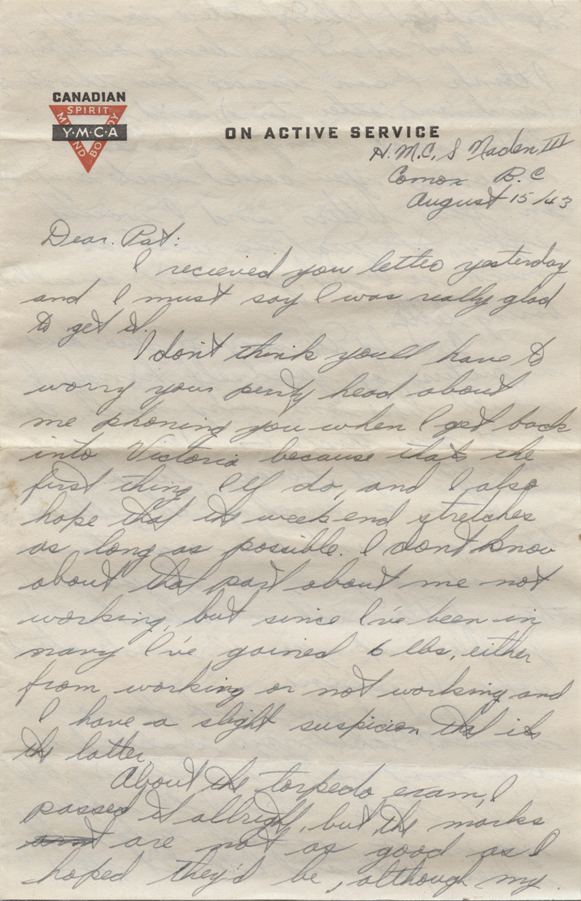 CANADIAN
SPIRIT
Y·M·C·A
MIND BODY
ON ACTIVE SERVICE
H.M.C.S Naden III
Comox B.C
August 15/43
Dear Pat:
I recieved you letter yesterday
and I must say I was really glad
to get it.
I don't think you'll have to
worry your perty head about
me phoning you when I get back
into Victoria because thats the
first thing I'll do, and I also
hope that the weekend stretches
as long as possible. I don't know
about that part about me not
working, but since I've been in
navy I've gained 6 lbs, either
from working or not working and
I have a slight suspicion that its
the latter.
About the torpedo exam, I
passed it allright, but the marks
are not as good as I
hoped they'd be, although my